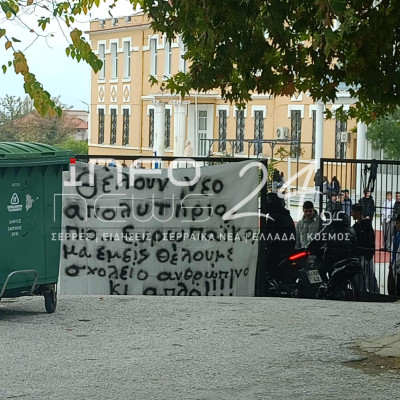 Θέλουν νεο
απολυτήριο
μα εμείς θέλουμε
σχολείο ανθρώπινο
κι απλό!!!!
news 24
ΣΕΡΡΕΣ , ΕΙΔΗΣΕΙΣ | ΣΕΡΡΑΙΚΑ ΝΕΑ | ΕΛΛΑΔΑ | ΚΟΣΜΟΣ